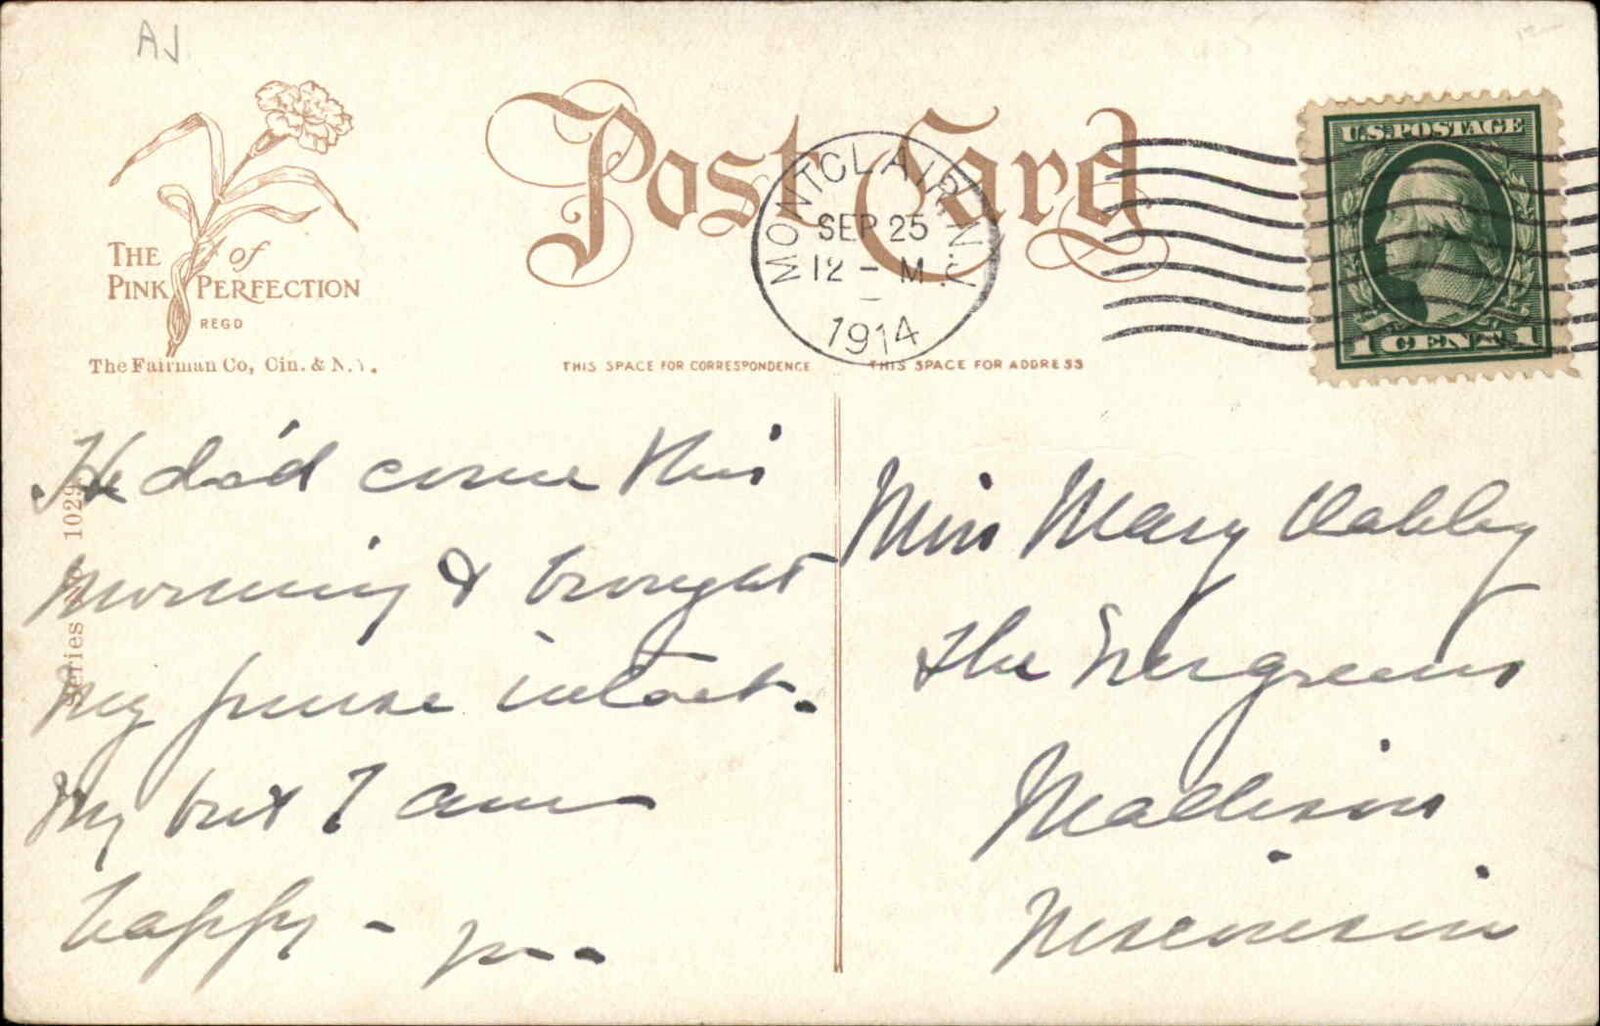 AJ
THE of
PINK PERFECTION
REGD
The Fairman Co, Cin. & N.Y.
Post Card
MONTCLAIR, N.J.
SEP 25
12 - M
1914
U.S. POSTAGE
1 CENT 1
THIS SPACE FOR CORRESPONDENCE
THIS SPACE FOR ADDRESS
Series No 1029
He did come this
morning & brought
my purse intact.
My but I am
happy -
Miss Mary Oakley
The Evergreens
Madison
Wisconsin